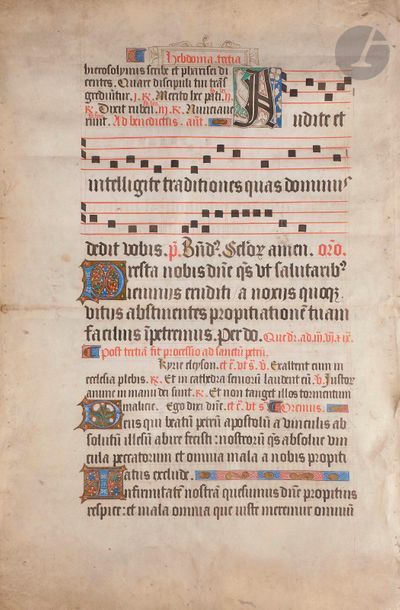 Hebdoma tertia
hierosolymis scribe et pharisei di
centes. Quare discipuli tui trãs
grediũtur. ℟. Merito hec pati. ℟.
℟. Dixit ruben. ℟. Nunciave
runt. Ad benedictus. ant.
Audite et
intelligite traditiones quas dominus
dedit vobis. p̃. Bñd. Seꝉor amen. orõ.
Presta nobis dñe q̃s ut salutarib9
ieiuniis eruditi a noxiis quoqꝫ
vitiis abstinentes propitationẽ tuam
facilius ĩpetremus. Per do.
Post tertia fit processio ad sanctũ petrũ.
Kyrie eleyson. Exaltent eum in
ecclesia plebis. ℟. Et in cathedra seniorũ laudent eũ. ℣. Justor
anime in manu dei sunt. ℟. Et non tanget illos tormentum
malicie. Ego dixi dñe. Oremus.
Deus qui beatũ petrũ apostolũ a vinculis ab
solutũ illesũ abire fecisti: nostrorũ q̃s absolve vin
cula peccatorum et omnia mala a nobis propiti
atus exclude.
Infirmitatẽ nostrã quesumus dñe propitius
respice: et mala omnia que iuste meremur omniũ